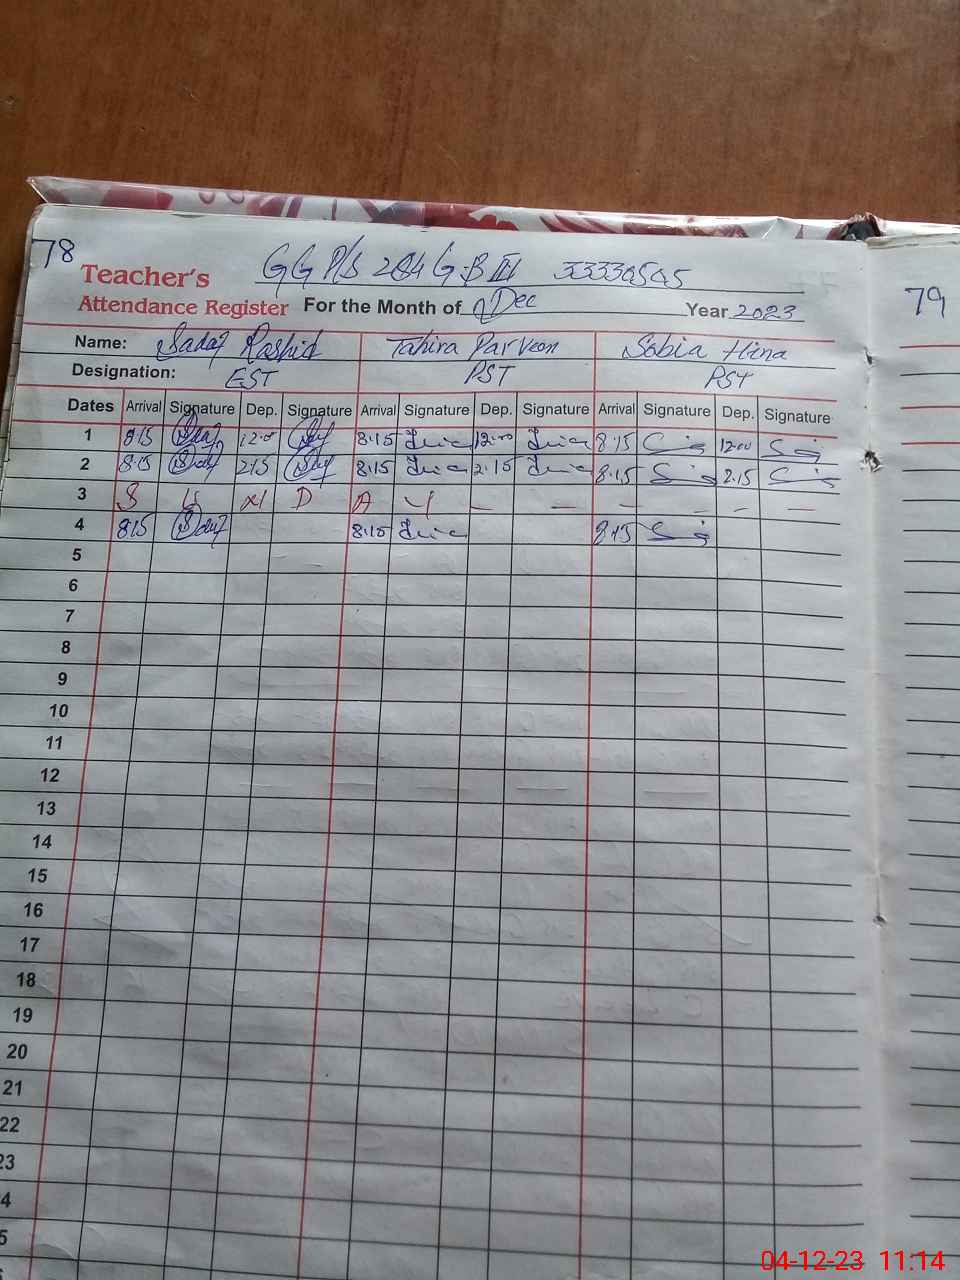 78
GG P/S 284 G.B III 33330505
Teacher's
Attendance Register For the Month of Dec Year 2023
79
Name: Sadaf Rashid Tahira Parveen Sobia Hina
Designation: EST PST PST
Dates Arrival Signature Dep. Signature Arrival Signature Dep. Signature Arrival Signature Dep. Signature
1 8:15 12:00 8:15 12:00 8:15 12:00
2 8:15 2:15 8:15 2:15 8:15 2.15
3 S U N D A Y — — — — — —
4 8:15 8:15 8:15
5
6
7
8
9
10
11
12
13
14
15
16
17
18
19
20
21
22
23
4
5
04-12-23 11:14